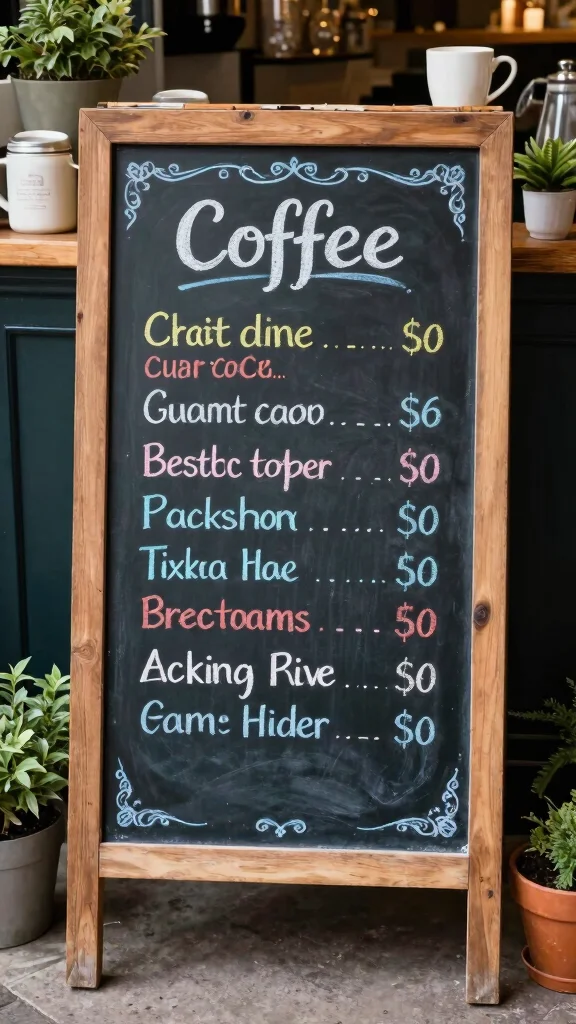 Coffee
Chait dine ....... $0
Cuar coCu...
Guamt caoo..... $6
Bestbc toper .... $0
Packshon ...... $0
Tixkra Hae ...... $0
Brectoams .... $0
Acking Rive .... $0
Game Hider .... $0